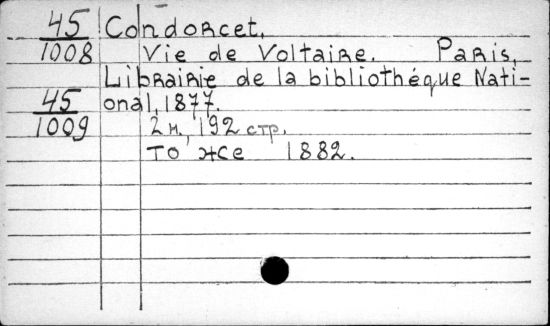 45 Condorcet.
1008 Vie de Voltaire. Paris,
Librairie de la bibliothéque Nati-
45 onal, 1877.
1009 2 н., 192 стр.
То же 1882.